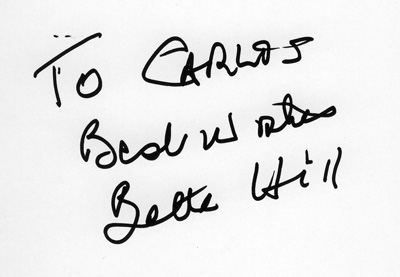 To CARLOS
Best Wishes
Bette Hill